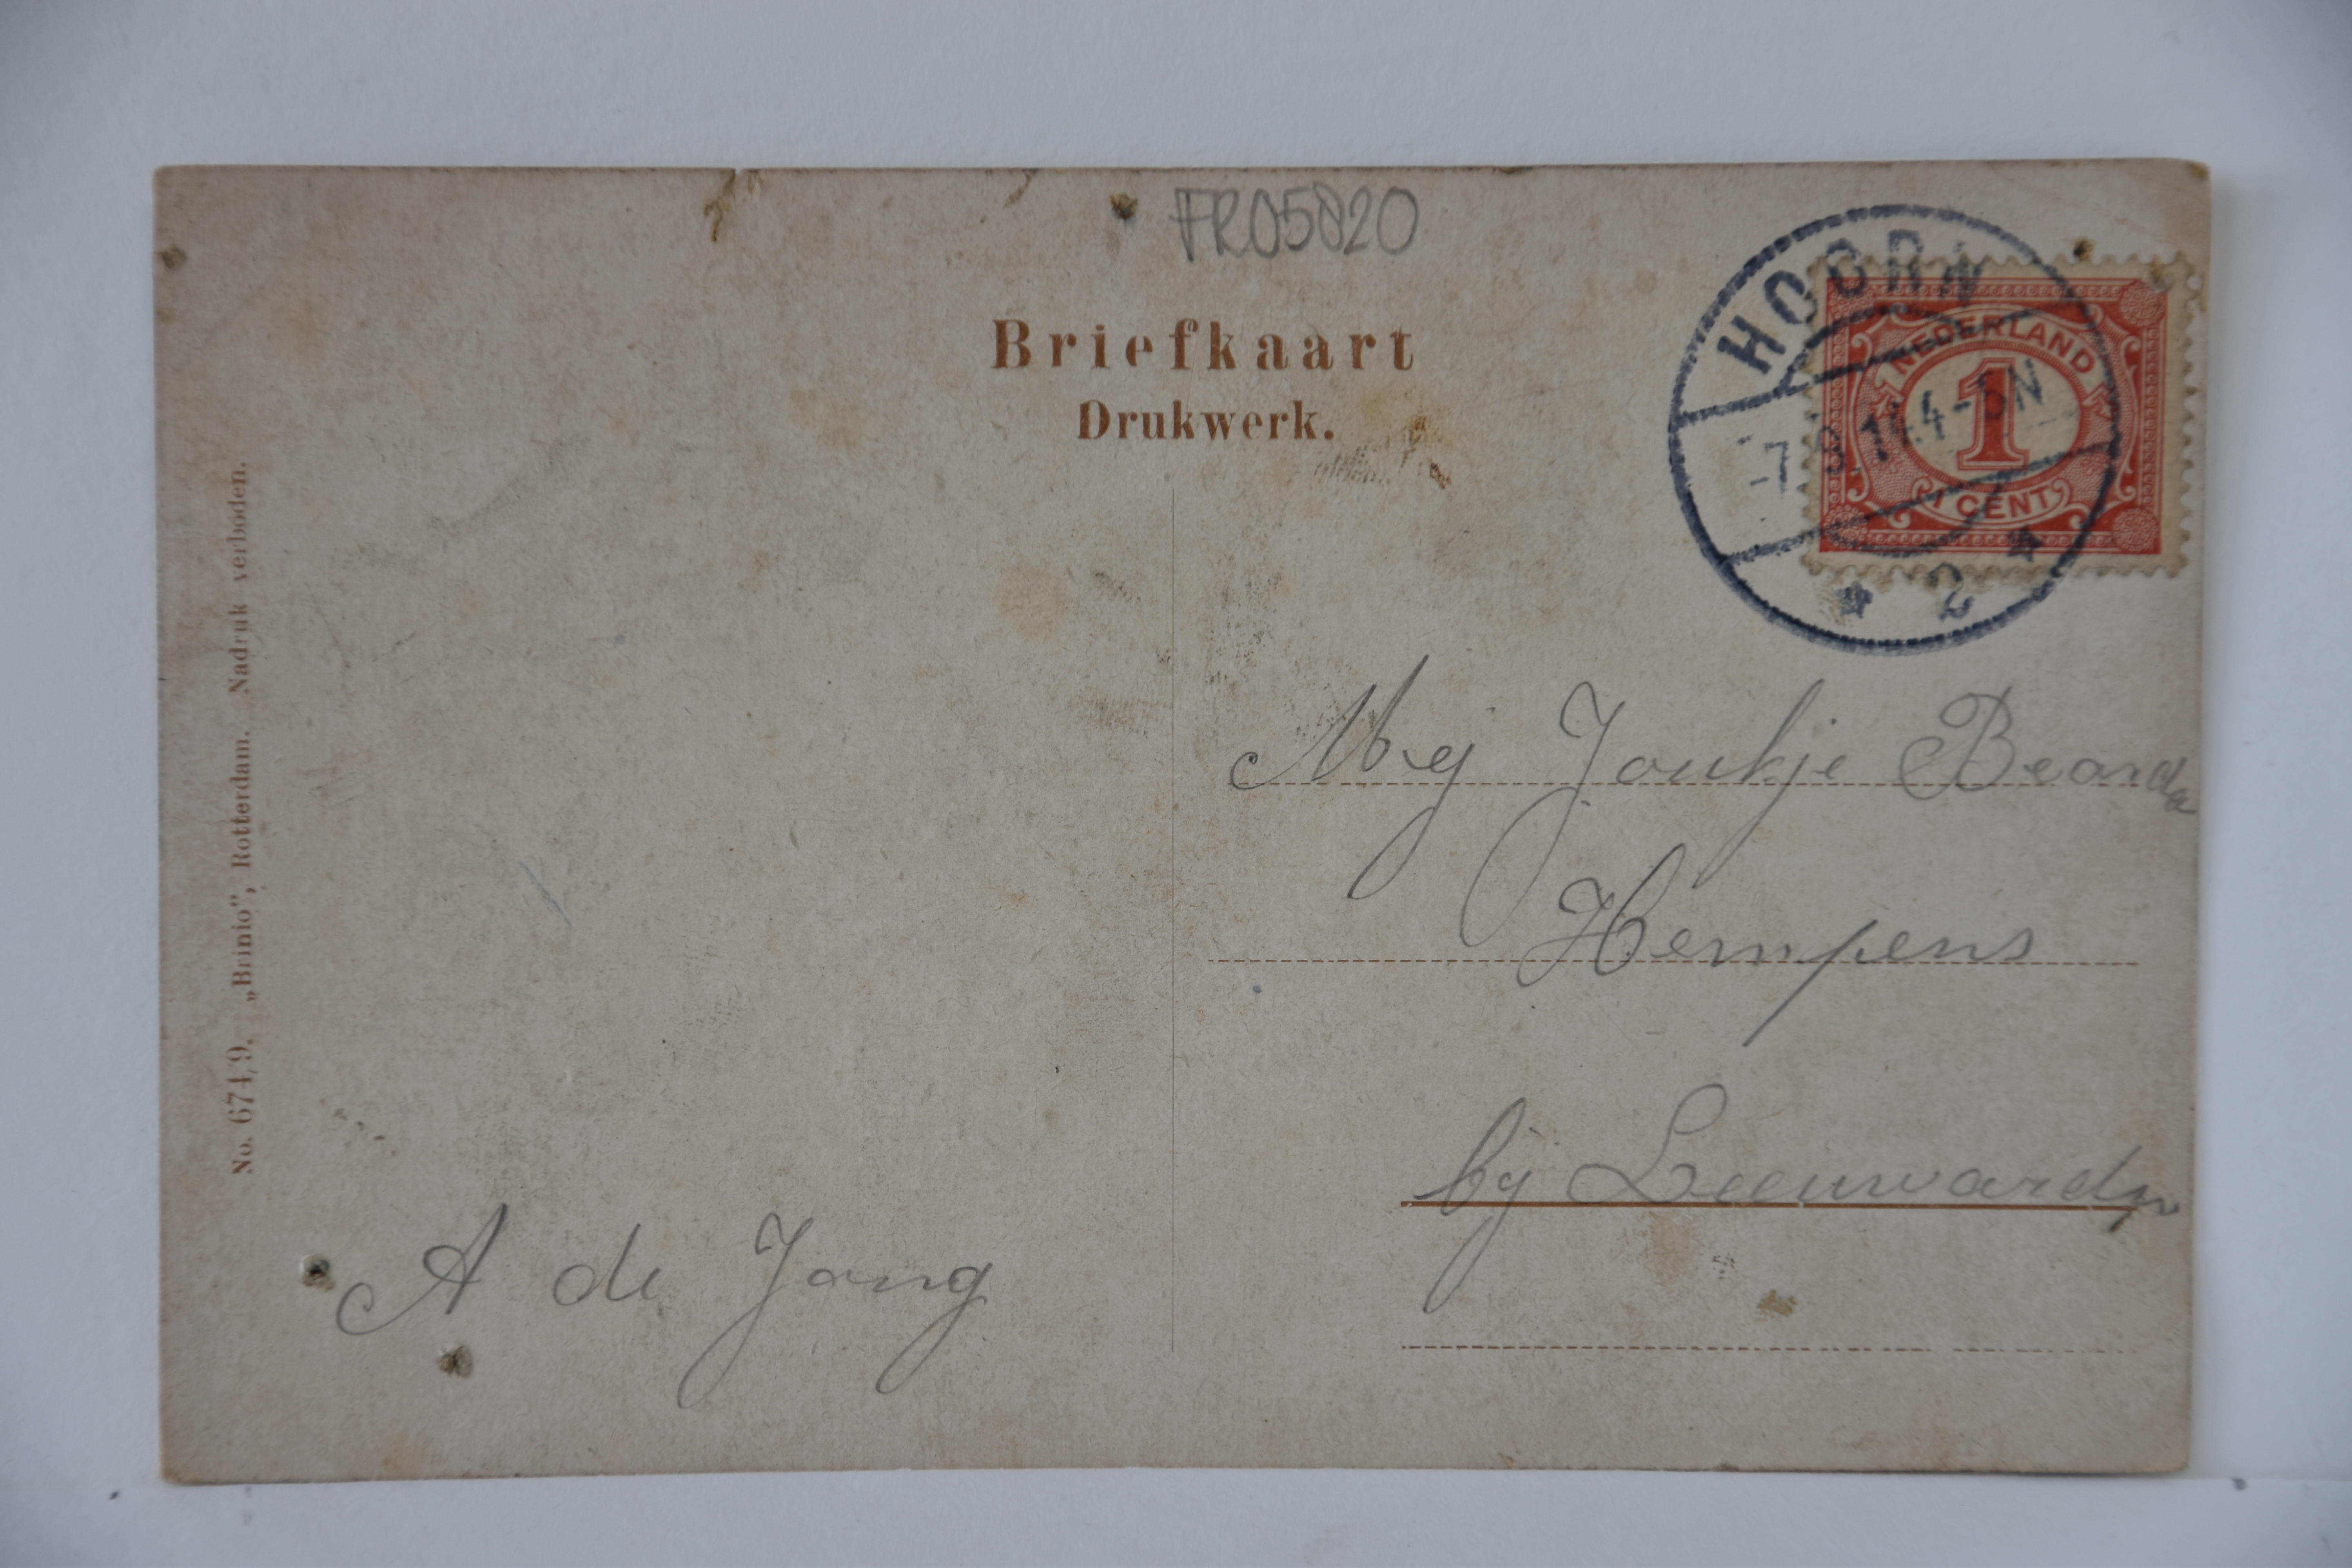 FR05820
Briefkaart
Drukwerk.
HOORN
NEDERLAND
1
-7.9.14.4-5N
1 CENT
* 2 *
Mej Joukje Bearda
Hempens
bij Leeuwarden
A de Jong
No. 674/9. „Brinio", Rotterdam. Nadruk verboden.